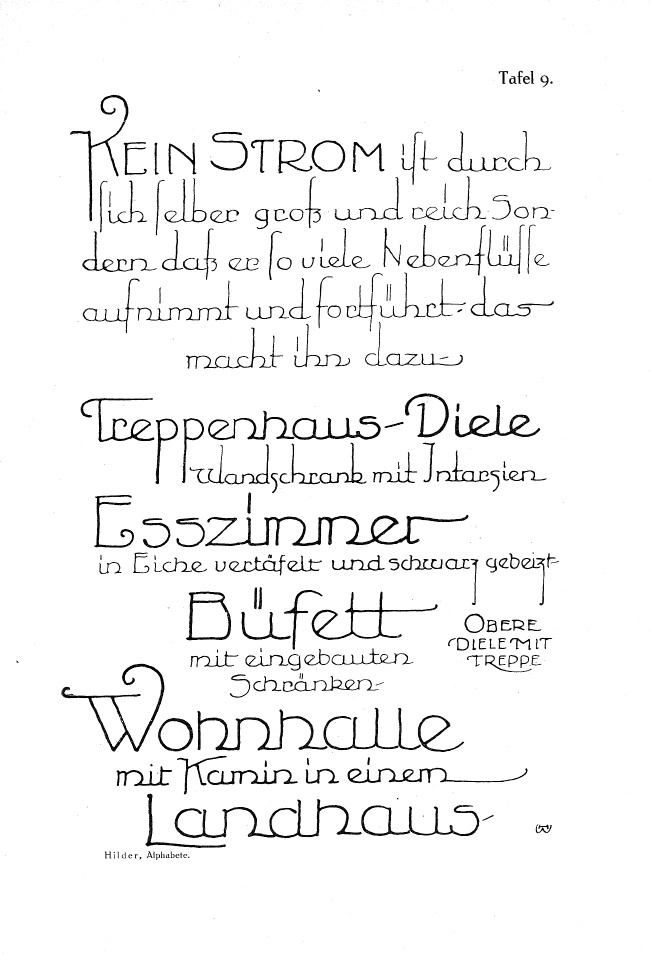 Tafel 9.
KEIN STROM ist durch
sich selber groß und reich Son-
dern daß er so viele Nebenflüsse
aufnimmt und fortführt-das
macht ihn dazu-
Treppenhaus-Diele
Wandschrank mit Intarsien
Esszimmer
in Eiche vertäfelt und schwarz gebeizt-
Büfett
mit eingebauten
Schränken-
OBERE
DIELE MIT
TREPPE
Wohnhalle
mit Kamin in einem
Landhaus-
Hilder, Alphabete.